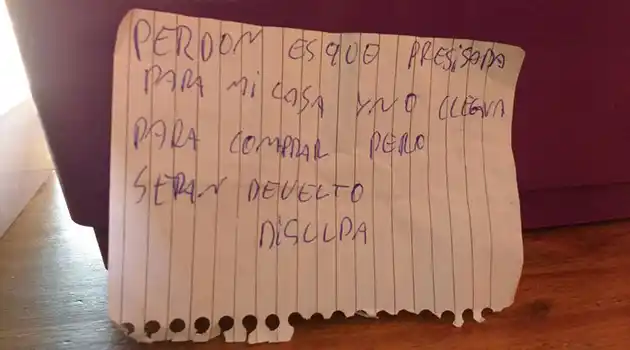 PERDON ES QUE PRESISADA
PARA MI CASA Y NO LLEGVA
PARA COMPRAR PERO
SERAN DEVELTO
DISCLPA